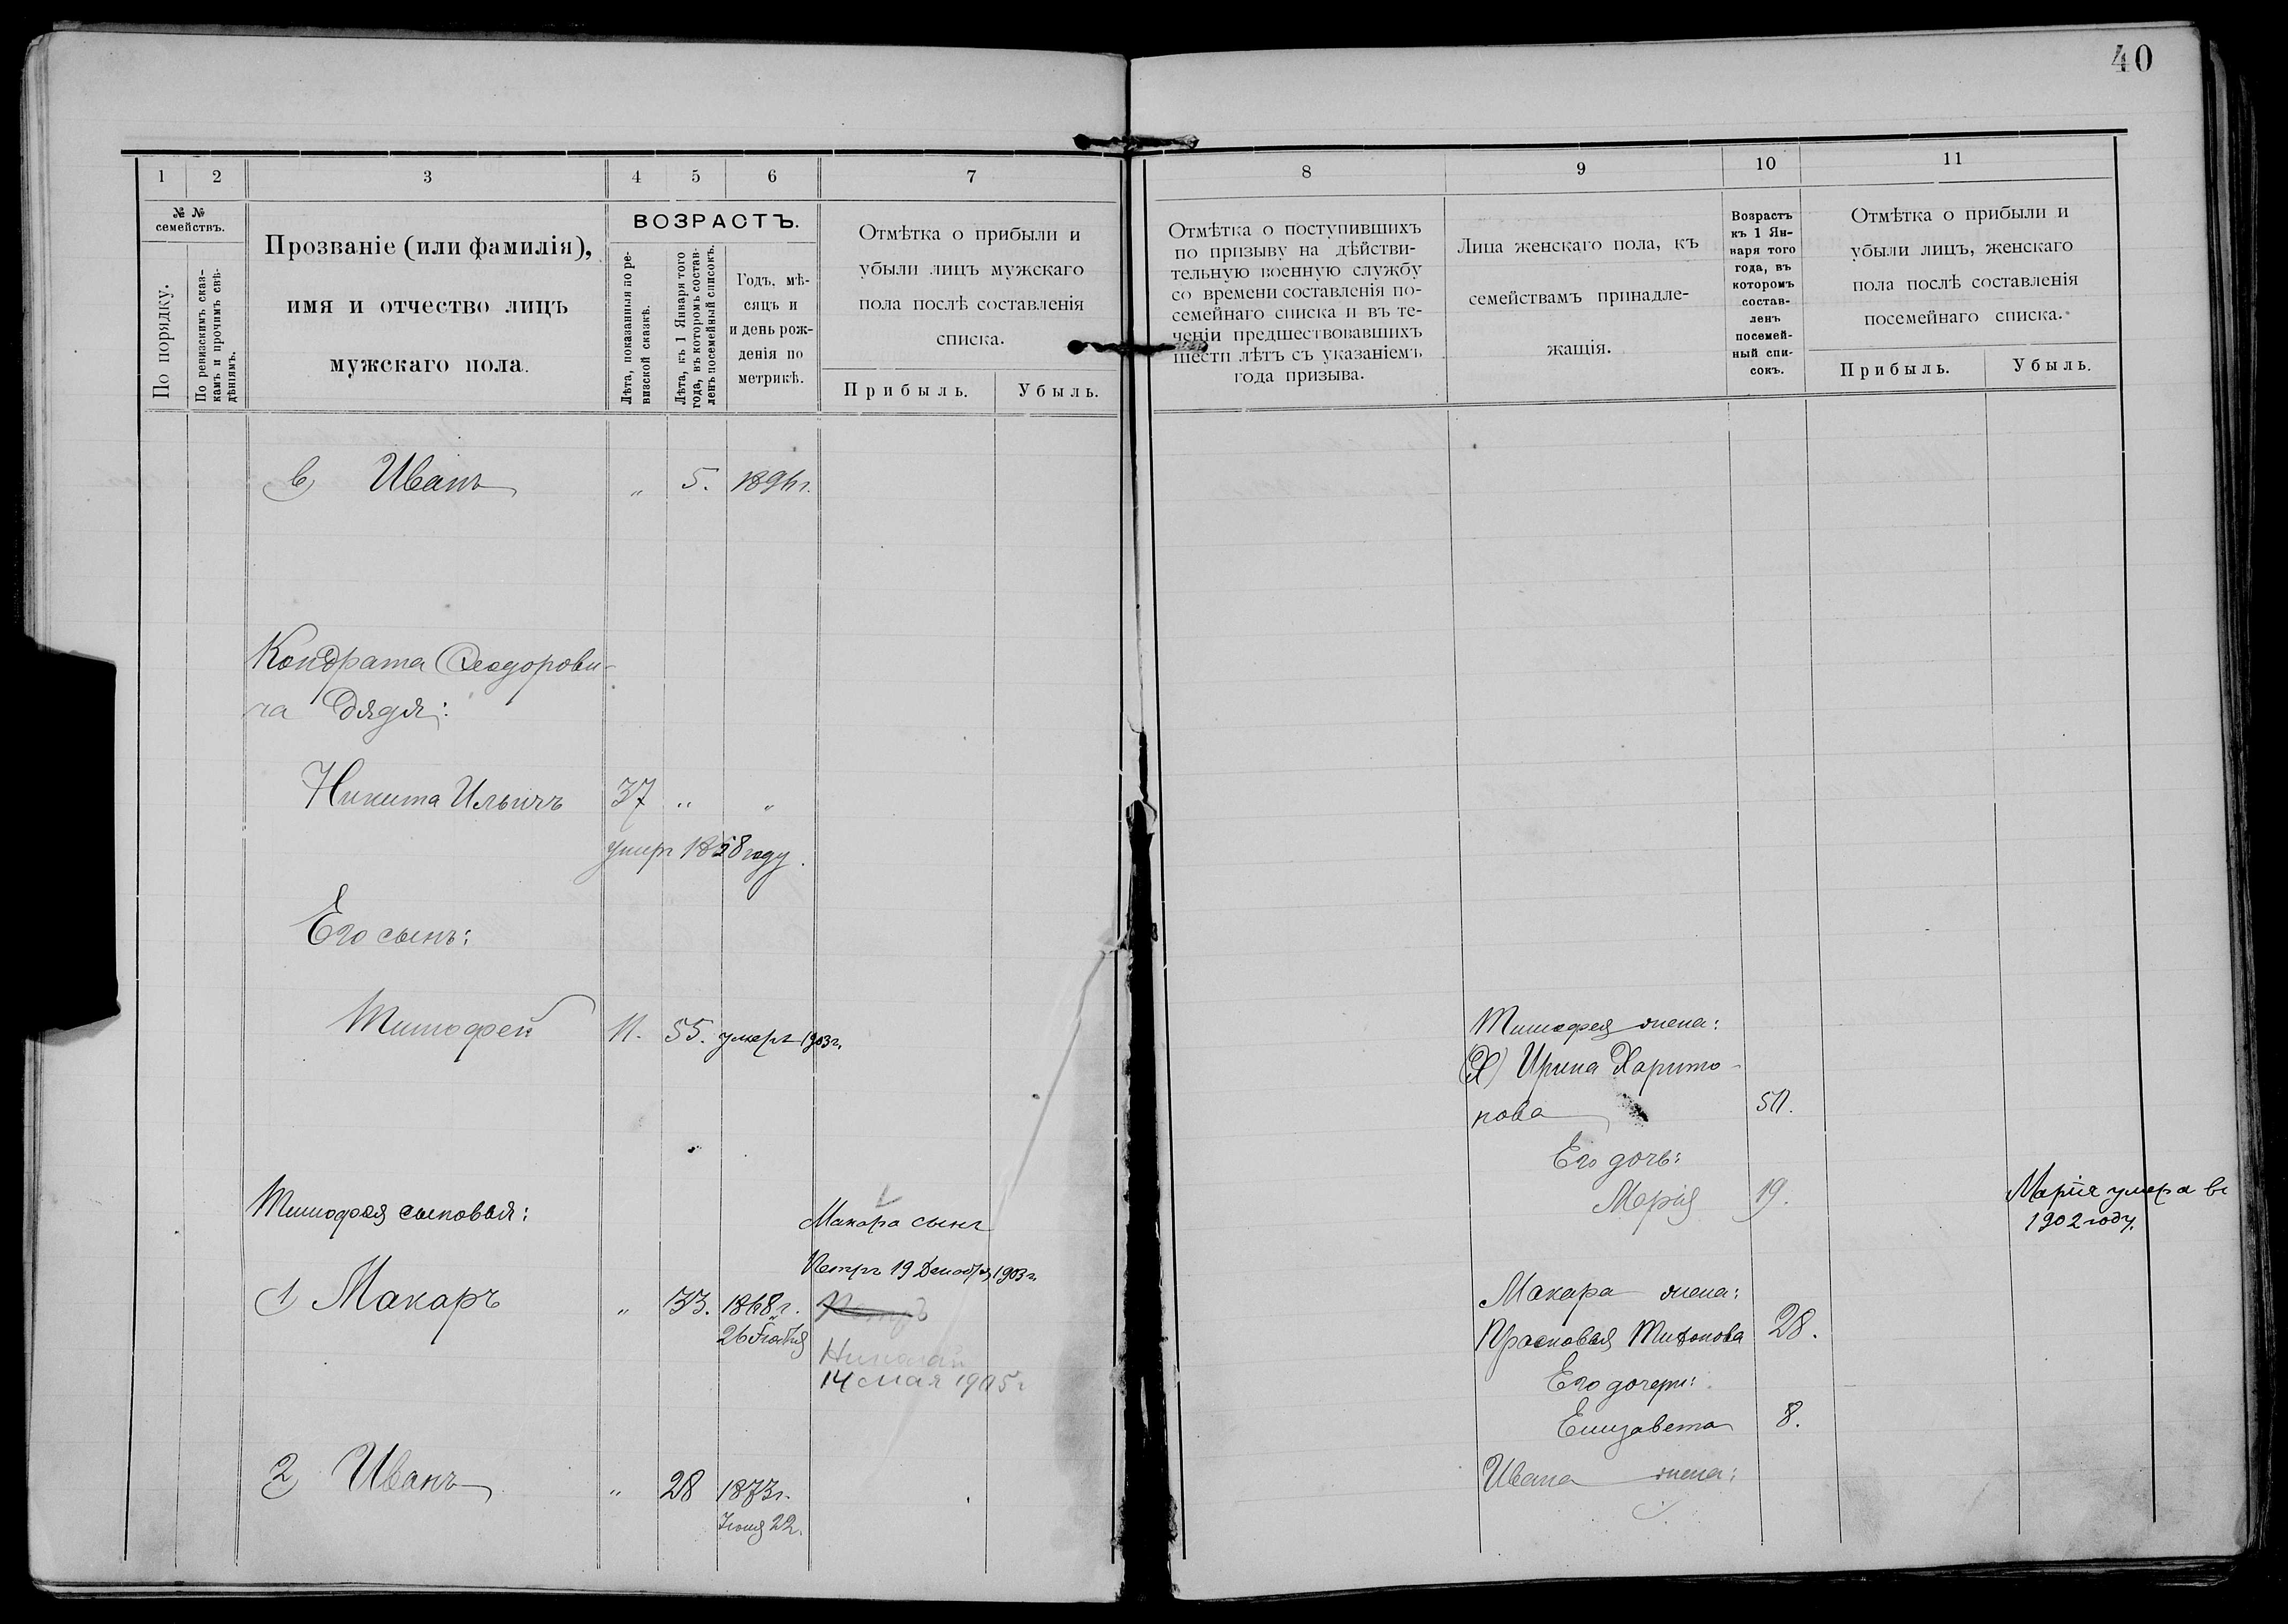 40
1 2 3 4 5 6 7
№ № семействъ.
По порядку.
По ревизскимъ сказ-
камъ и прочимъ свѣ-
дѣніямъ.
Прозваніе (или фамилія),
имя и отчество лицъ
мужскаго пола.
ВОЗРАСТЪ.
Лѣта, показанныя по ре-
визской сказкѣ.
Лѣта, къ 1 Января того
года, въ которомъ состав-
ленъ посемейный списокъ.
Годъ, мѣ-
сяцъ и
и день рож-
денія по
метрикѣ.
Отмѣтка о прибыли и
убыли лицъ мужскаго
пола послѣ составленія
списка.
Прибыль. Убыль.
в) Иванъ " 5. 1896 г.
Кондрата Ѳеодорови-
ча дядя:
Никита Ильичъ 37 " "
умеръ 1858 году.
Его сынъ:
Тимофей 11. 55. умеръ 1903 г.
Тимофея сыновья:
Макара сынъ
Петръ 19 Декабря 1903 г.
1) Макаръ " 33. 1868 г. Петръ
26
Николай
14 мая 1905 г
2) Иванъ " 28 1873 г.
22.
8 9 10 11
Отмѣтка о поступившихъ
по призыву на дѣйстви-
тельную военную службу
со времени составленія по-
семейнаго списка и въ те-
ченіи предшествовавшихъ
шести лѣтъ съ указаніемъ
года призыва.
Лица женскаго пола, къ
семействамъ принадле-
жащія.
Возрастъ
къ 1 Ян-
варя того
года, въ
которомъ
состав-
ленъ
посемей-
ный спи-
сокъ.
Отмѣтка о прибыли и
убыли лицъ, женскаго
пола послѣ составленія
посемейнаго списка.
Прибыль. Убыль.
Тимофея жена:
Ирина Харито-
нова 50.
Его дочь:
Марія 19. Марія умера въ
1902 году.
Макара жена:
Прасковья 28.
Его дочери:
Елизавета 8.
Ивана жена: